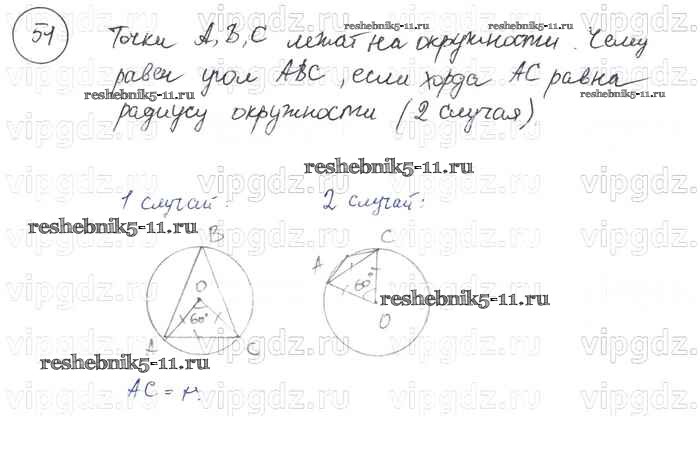 51
Точки А, В, С лежат на окружности. Чему
равен угол АВС, если хорда АС равна
радиусу окружности (2 случая)
reshebnik5-11.ru
reshebnik5-11.ru
reshebnik5-11.ru
reshebnik5-11.ru
1 случай: 2 случай:
reshebnik5-11.ru
B C
A
O 60°
60° reshebnik5-11.ru
O
A C
reshebnik5-11.ru
AC = r.
vipgdz.ru vipgdz.ru vipgdz.ru vipgdz.ru